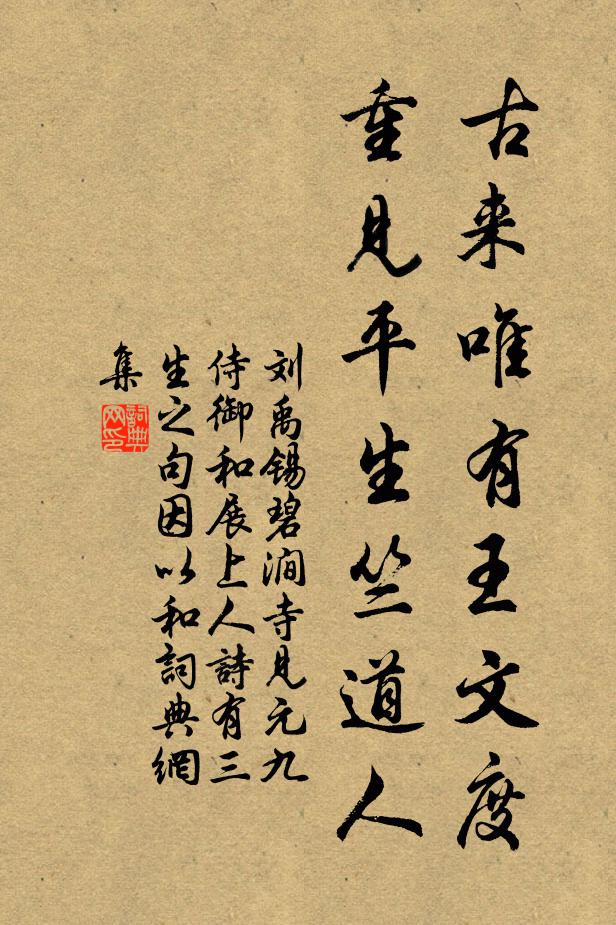 古来唯有王文度
重見平生竺道人
刘禹锡碧澗寺見元九
侍御和展上人詩有三
生之句因以和詞典網
集
詞典
网印